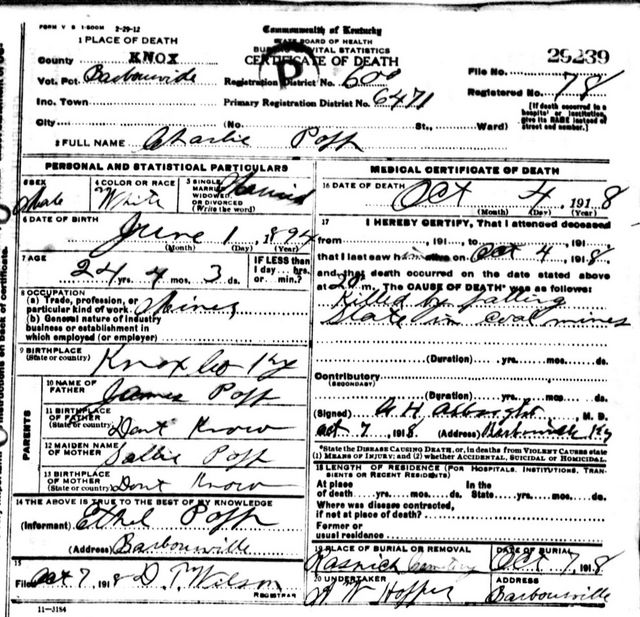 FORM V S 1-500M 2-29-12
Commonwealth of Kentucky
STATE BOARD OF HEALTH
BUREAU VITAL STATISTICS
CERTIFICATE OF DEATH
P
29239
1 PLACE OF DEATH
County KNOX
Vot. Pct. Barbourville
Inc. Town
City (No. St., Ward)
Registration District No. 600
Primary Registration District No. 6471
File No.
Registered No. 78
[If death occurred in a hospital or institution, give its NAME instead of street and number.]
2 FULL NAME Charlie Poff
PERSONAL AND STATISTICAL PARTICULARS
3 SEX Male
4 COLOR OR RACE White
5 SINGLE, MARRIED, WIDOWED, OR DIVORCED (Write the word) Married
6 DATE OF BIRTH June 1, 1894
(Month) (Day) (Year)
7 AGE 24 yrs. 4 mos. 3 ds.
IF LESS than 1 day... hrs. or min.?
8 OCCUPATION
(a) Trade, profession, or particular kind of work Miner
(b) General nature of industry business or establishment in which employed (or employer)
9 BIRTHPLACE (State or country) Knox Co Ky
PARENTS
10 NAME OF FATHER James Poff
11 BIRTHPLACE OF FATHER (State or country) Dont Know
12 MAIDEN NAME OF MOTHER Sallie Poff
13 BIRTHPLACE OF MOTHER (State or country) Dont Know
14 THE ABOVE IS TRUE TO THE BEST OF MY KNOWLEDGE
(Informant) Ethel Poff
(Address) Barbourville
15
Filed Oct 7, 1918 D. T. Wilson
REGISTRAR
11-3184
MEDICAL CERTIFICATE OF DEATH
16 DATE OF DEATH Oct 4, 1918
(Month) (Day) (Year)
17 I HEREBY CERTIFY, That I attended deceased
from , 191 , to , 191
that I last saw him alive on Oct 4, 1918
and that death occurred on the date stated above
at m. The CAUSE OF DEATH* was as follows:
Killed by falling
Slate in coal mines
(Duration) yrs. mos. ds.
Contributory (SECONDARY)
(Duration) yrs. mos. ds.
(Signed) Albright, M. D.
Oct 7, 1918 (Address) Barbourville Ky
*State the DISEASE CAUSING DEATH, or, in deaths from VIOLENT CAUSES state (1) MEANS OF INJURY; and (2) whether ACCIDENTAL, SUICIDAL or HOMICIDAL.
18 LENGTH OF RESIDENCE (FOR HOSPITALS, INSTITUTIONS, TRANSIENTS OR RECENT RESIDENTS)
At place of death yrs. mos. ds. In the State yrs. mos. ds.
Where was disease contracted, if not at place of death?
Former or usual residence
19 PLACE OF BURIAL OR REMOVAL
DATE OF BURIAL Oct 7, 1918
20 UNDERTAKER Hopper
ADDRESS Barbourville